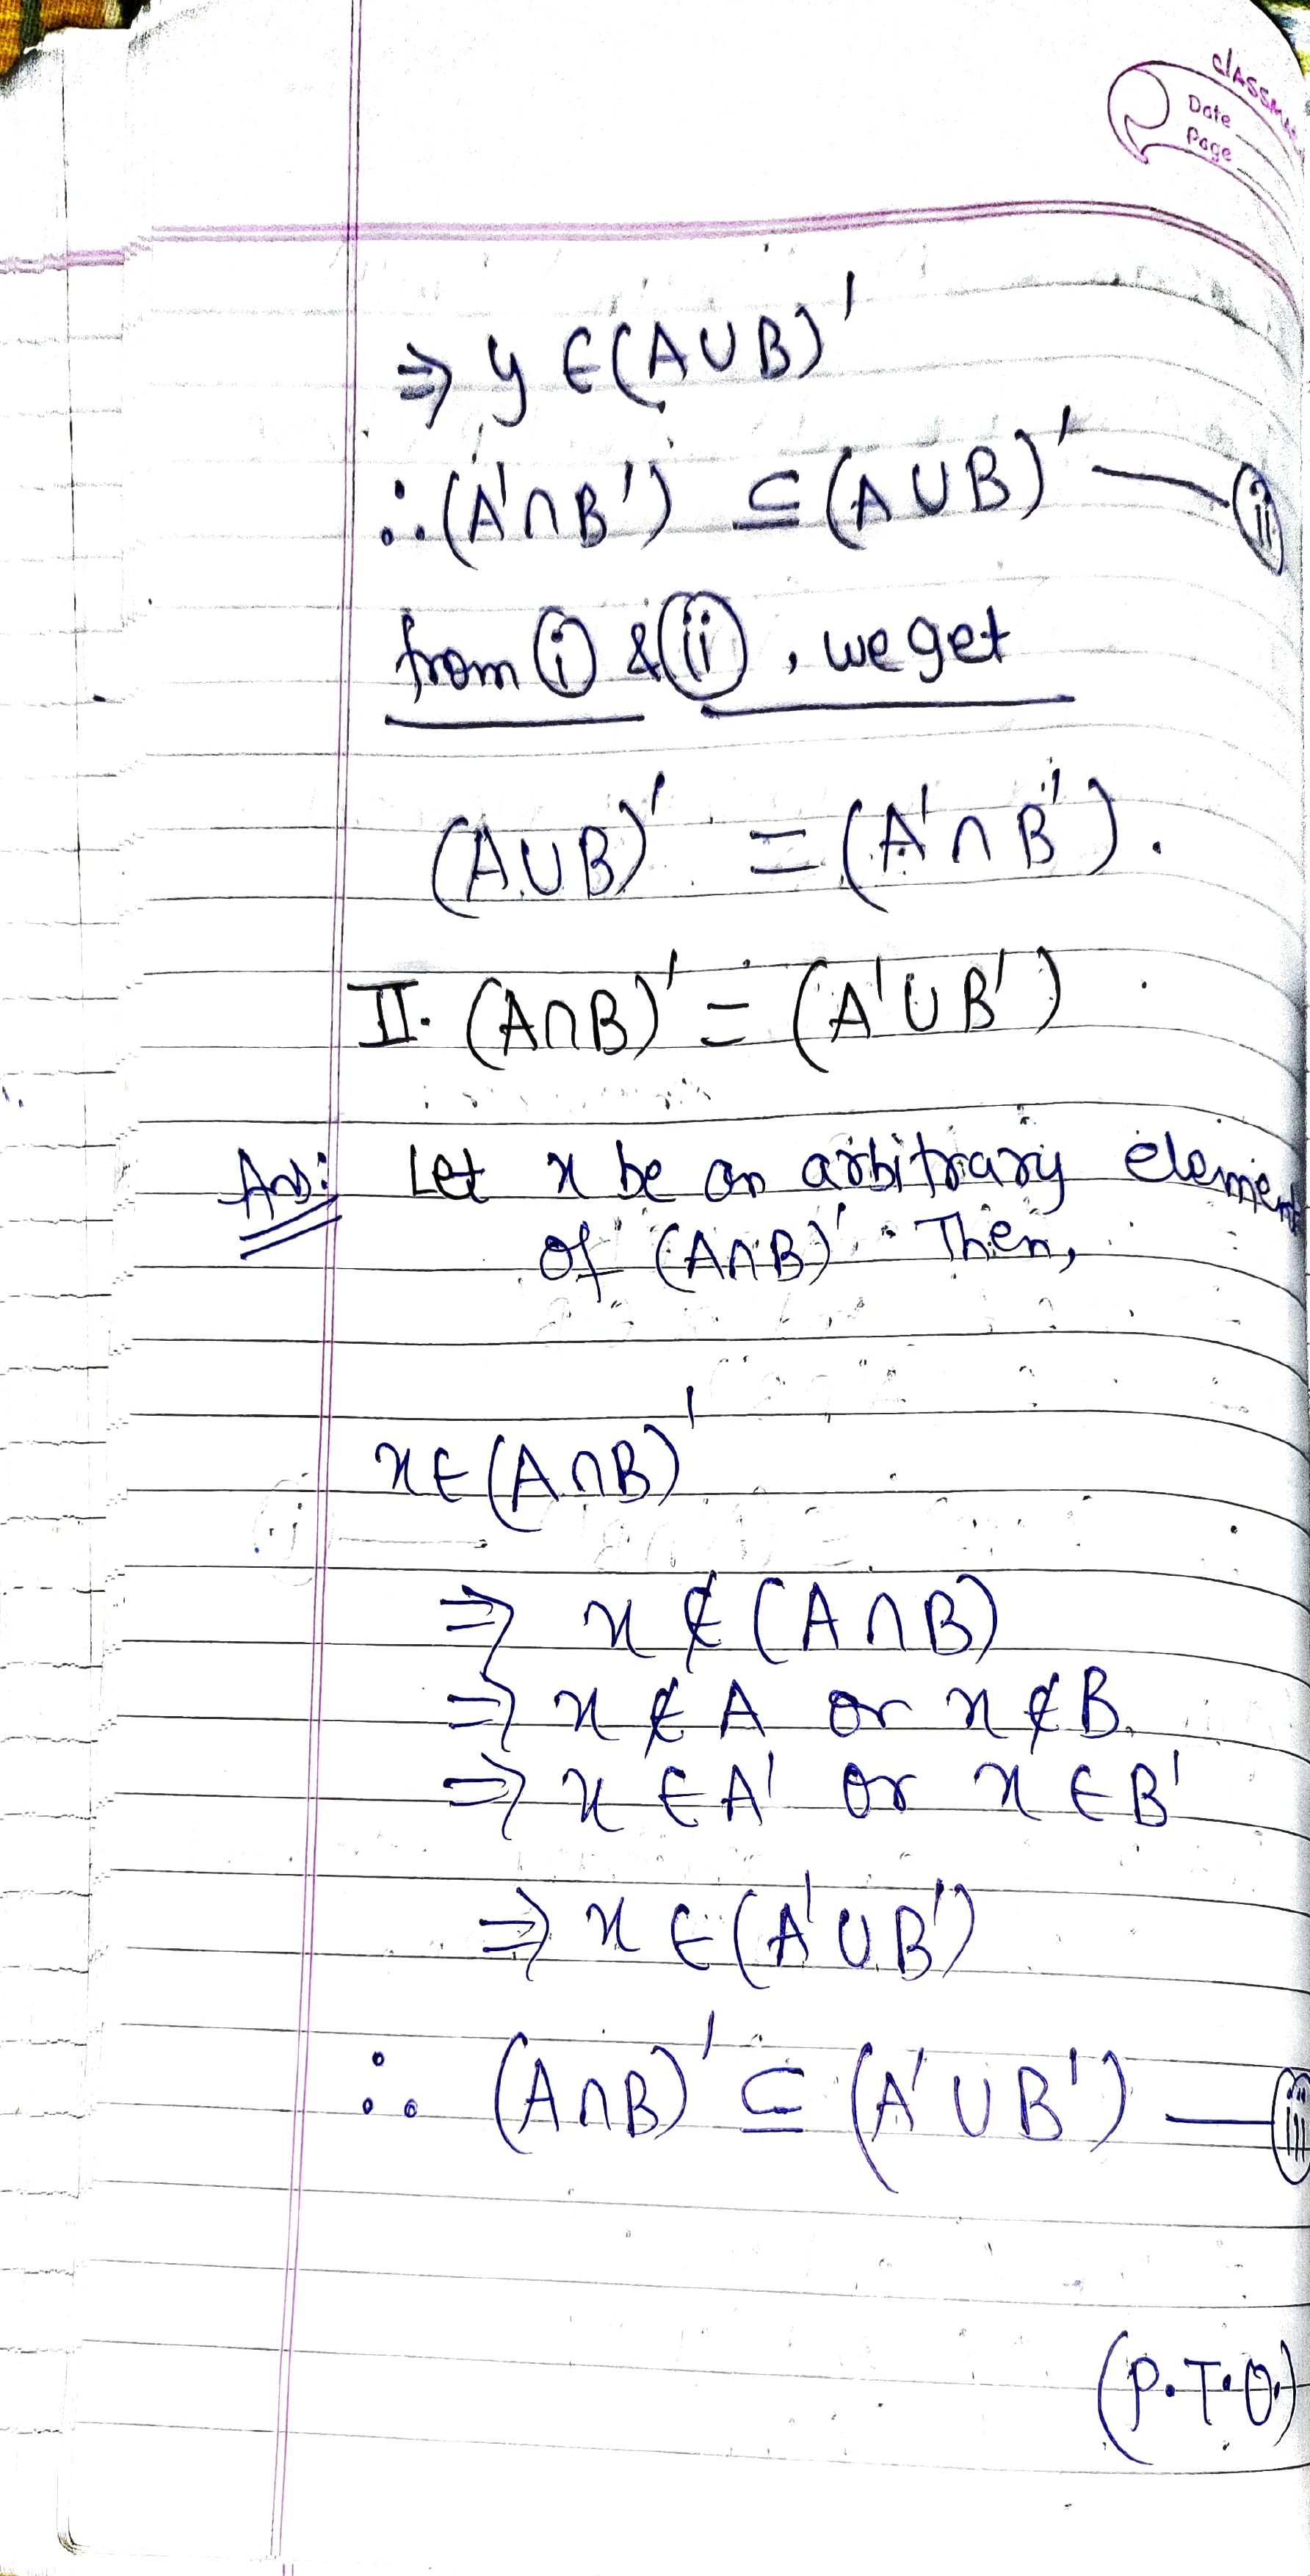 classmate
Date
Page
⇒ y ∈ (A∪B)'
∴ (A'∩B') ⊆ (A∪B)' — (ii)
from (i) & (ii), we get
(A∪B)' = (A'∩B').
II. (A∩B)' = (A'∪B')
Ans: Let x be an arbitrary element
of (A∩B)'. Then,
x ∈ (A∩B)'
⇒ x ∉ (A∩B)
⇒ x ∉ A or x ∉ B.
⇒ x ∈ A' or x ∈ B'
⇒ x ∈ (A'∪B')
∴ (A∩B)' ⊆ (A'∪B') — (iii)
(P.T.O.)